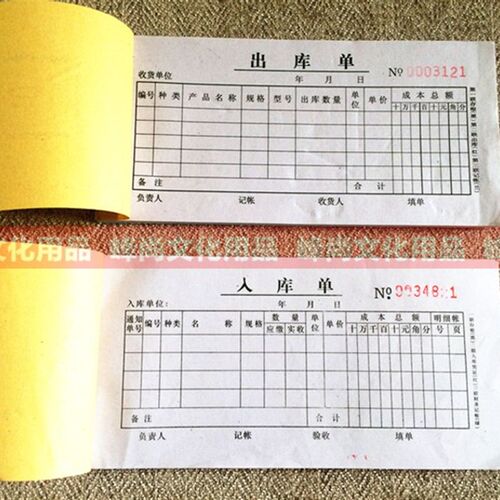 出库单
收货单位 年 月 日 № 0003121
编号 种类 产品名称 规格 型号 出库数量 单位 单价 成本总额
十万千百十元角分
备注 合计
负责人 记帐 收货人 填单
文化用品 峰尚文化用品 峰尚文化用品
入库单
入库单位: 年 月 日 №
通知单号 编号 种类 名称 规格 数量 单位 单价 成本总额 明细帐
应缴 实收 十万千百十元角分 号 页
备注 合计
负责人 记帐 验收 填单